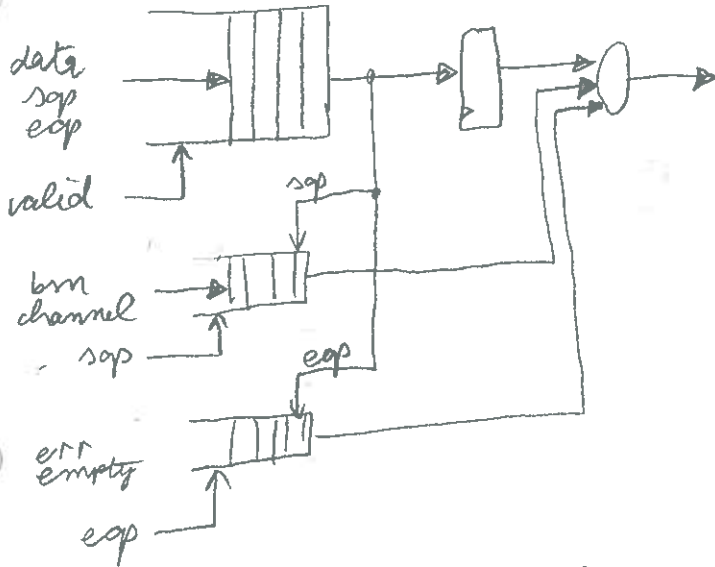 data
sop
eop
valid
sop
bsn
channel
sop
eop
err
empty
eop